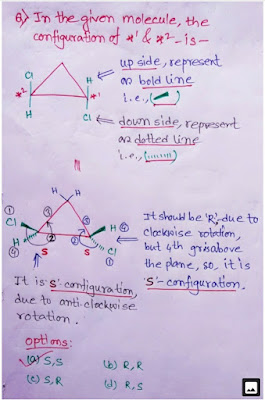 Q) In the given molecule, the
configuration of *¹ & *² -is-
upside, represent
as bold line
i.e.,( )
Cl H
*2 *1
H Cl
down side, represent
as dotted line
i.e., (ııııııı)
|||
H H
① Cl ③ ③ H ④
④ H ② ② Cl ①
S S
It should be 'R', due to
clockwise rotation,
but 4th gr is above
the plane, so, it is
'S'- configuration.
It is 'S' configuration,
due to anti clockwise
rotation.
options:
(a) S,S (b) R,R
(c) S,R (d) R,S